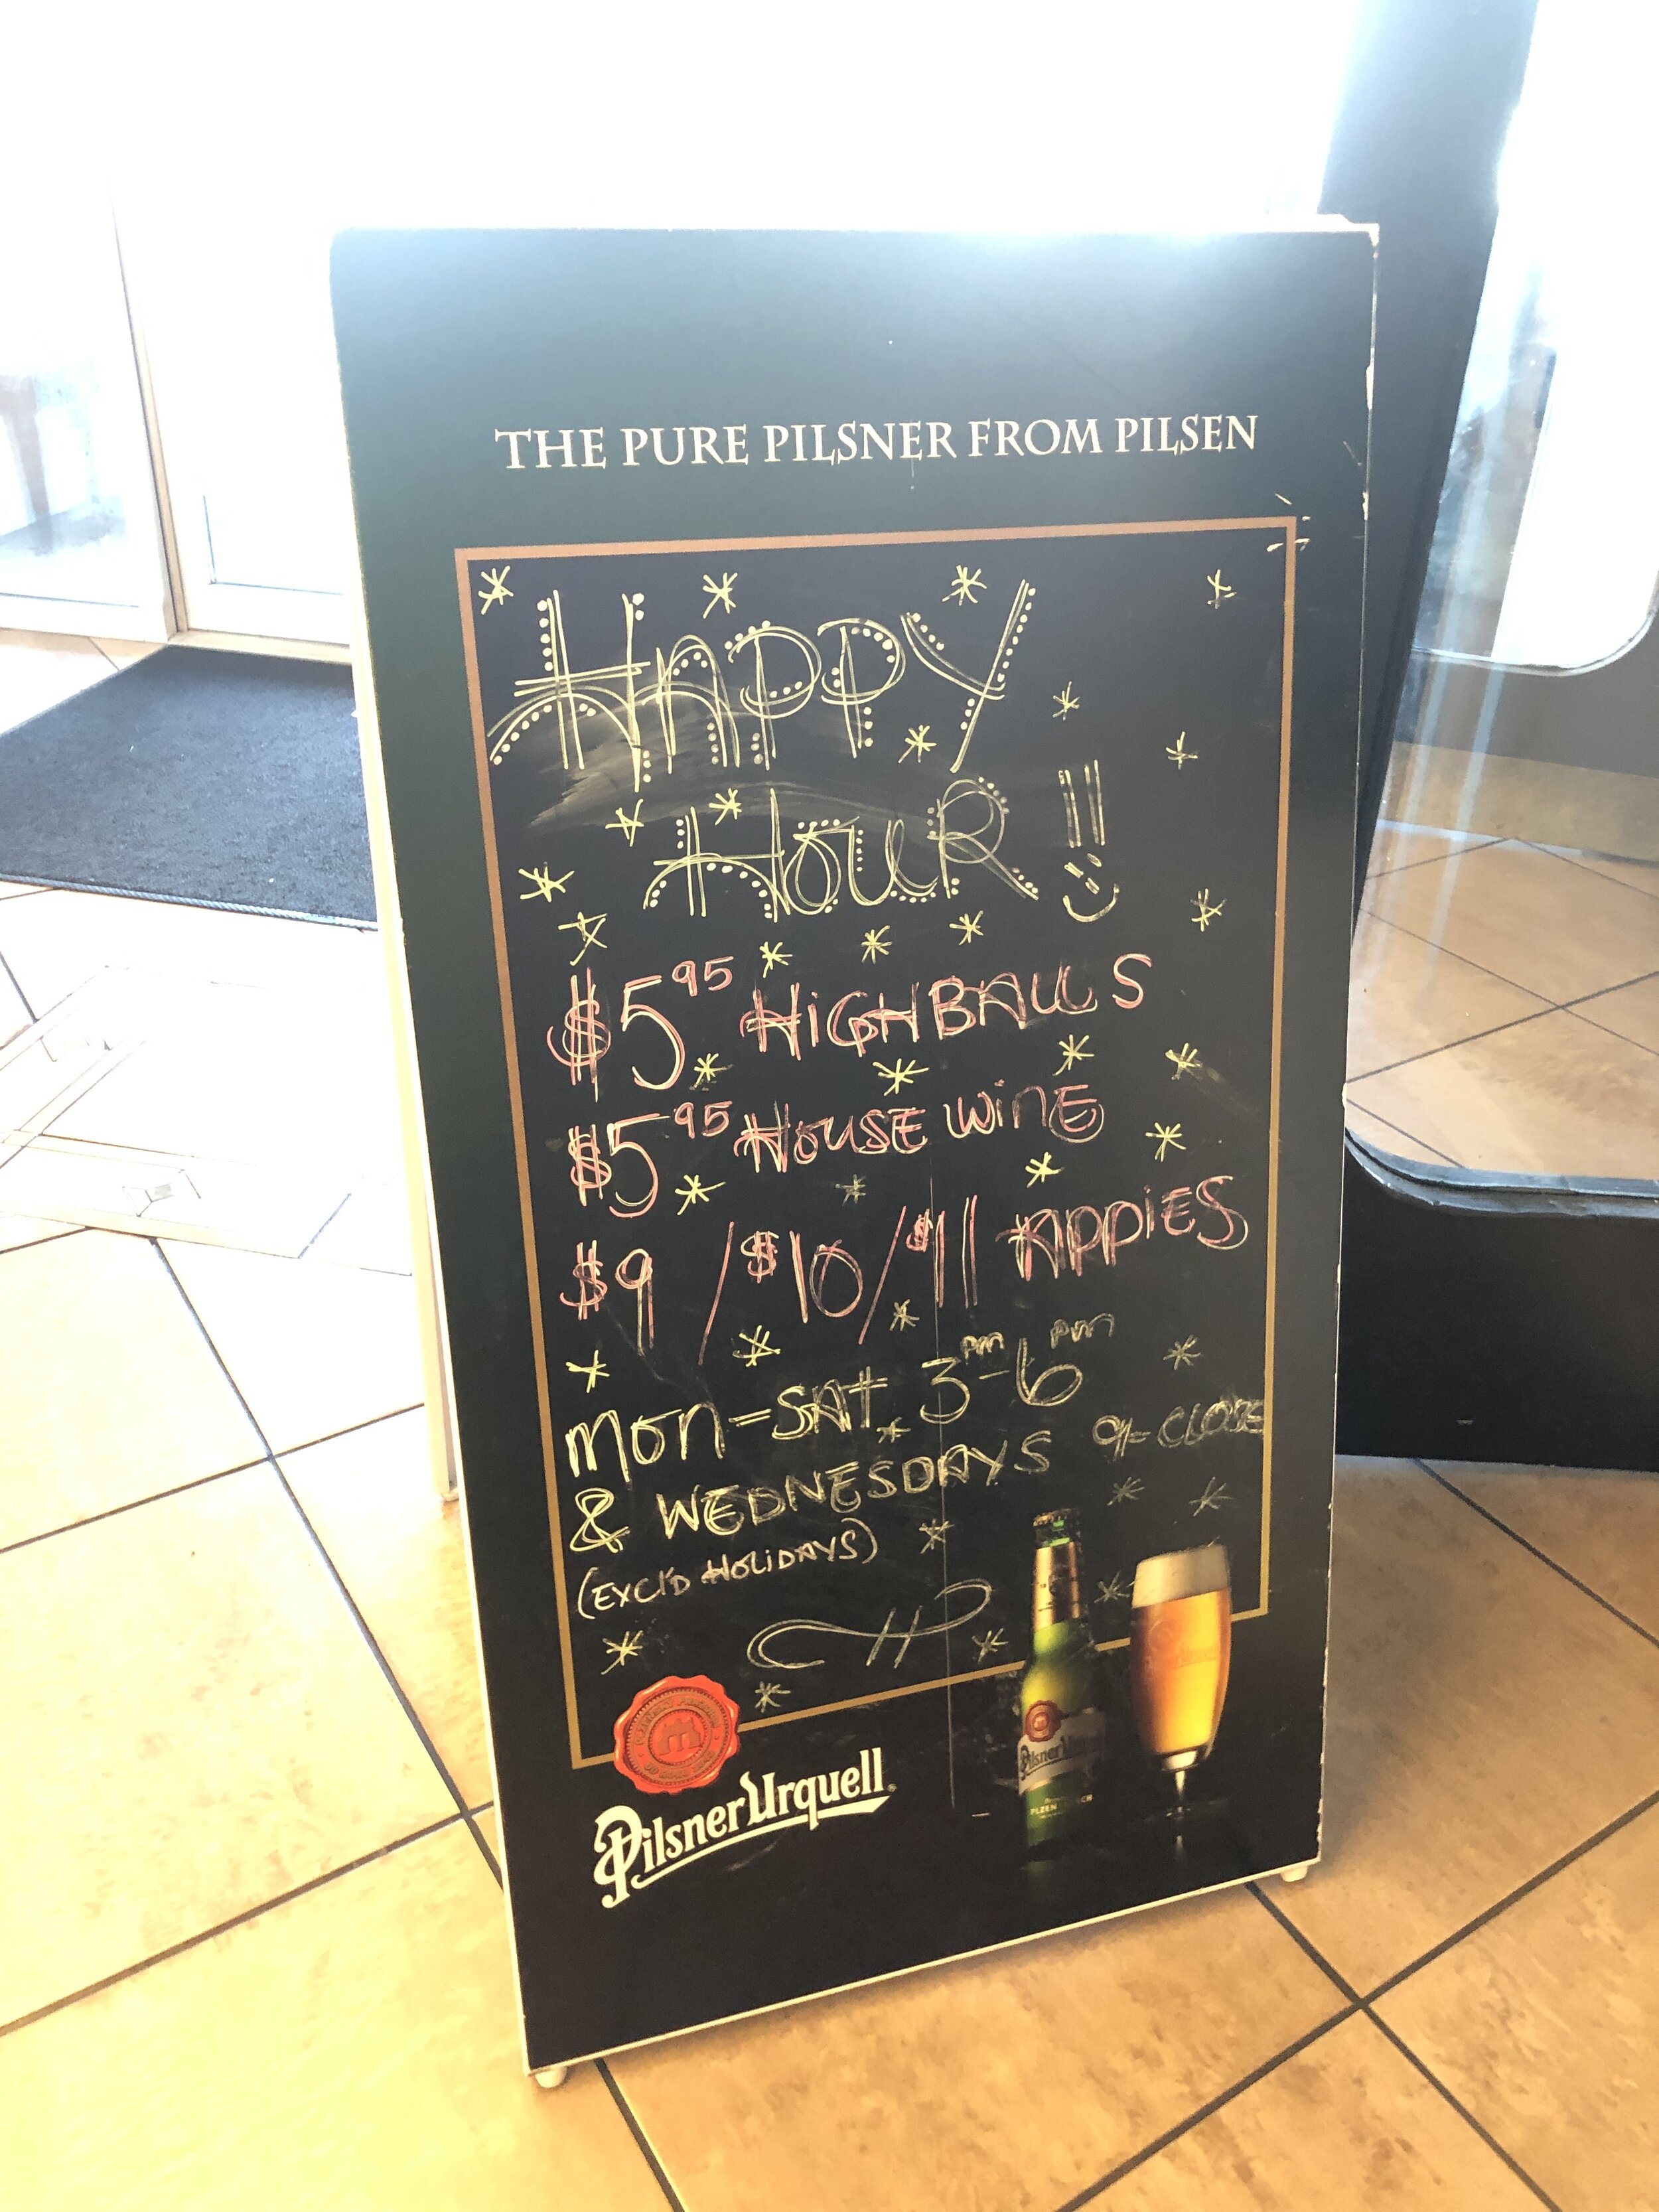 THE PURE PILSNER FROM PILSEN
HAPPY
HOUR!!
$5.95 HIGHBALLS
$5.95 HOUSE WINE
$9 / $10 / $11 APPIES
MON-SAT 3PM-6PM
& WEDNESDAYS 9-CLOSE
(EXCL'D HOLIDAYS)
Pilsner Urquell
Pilsner
PLZEN